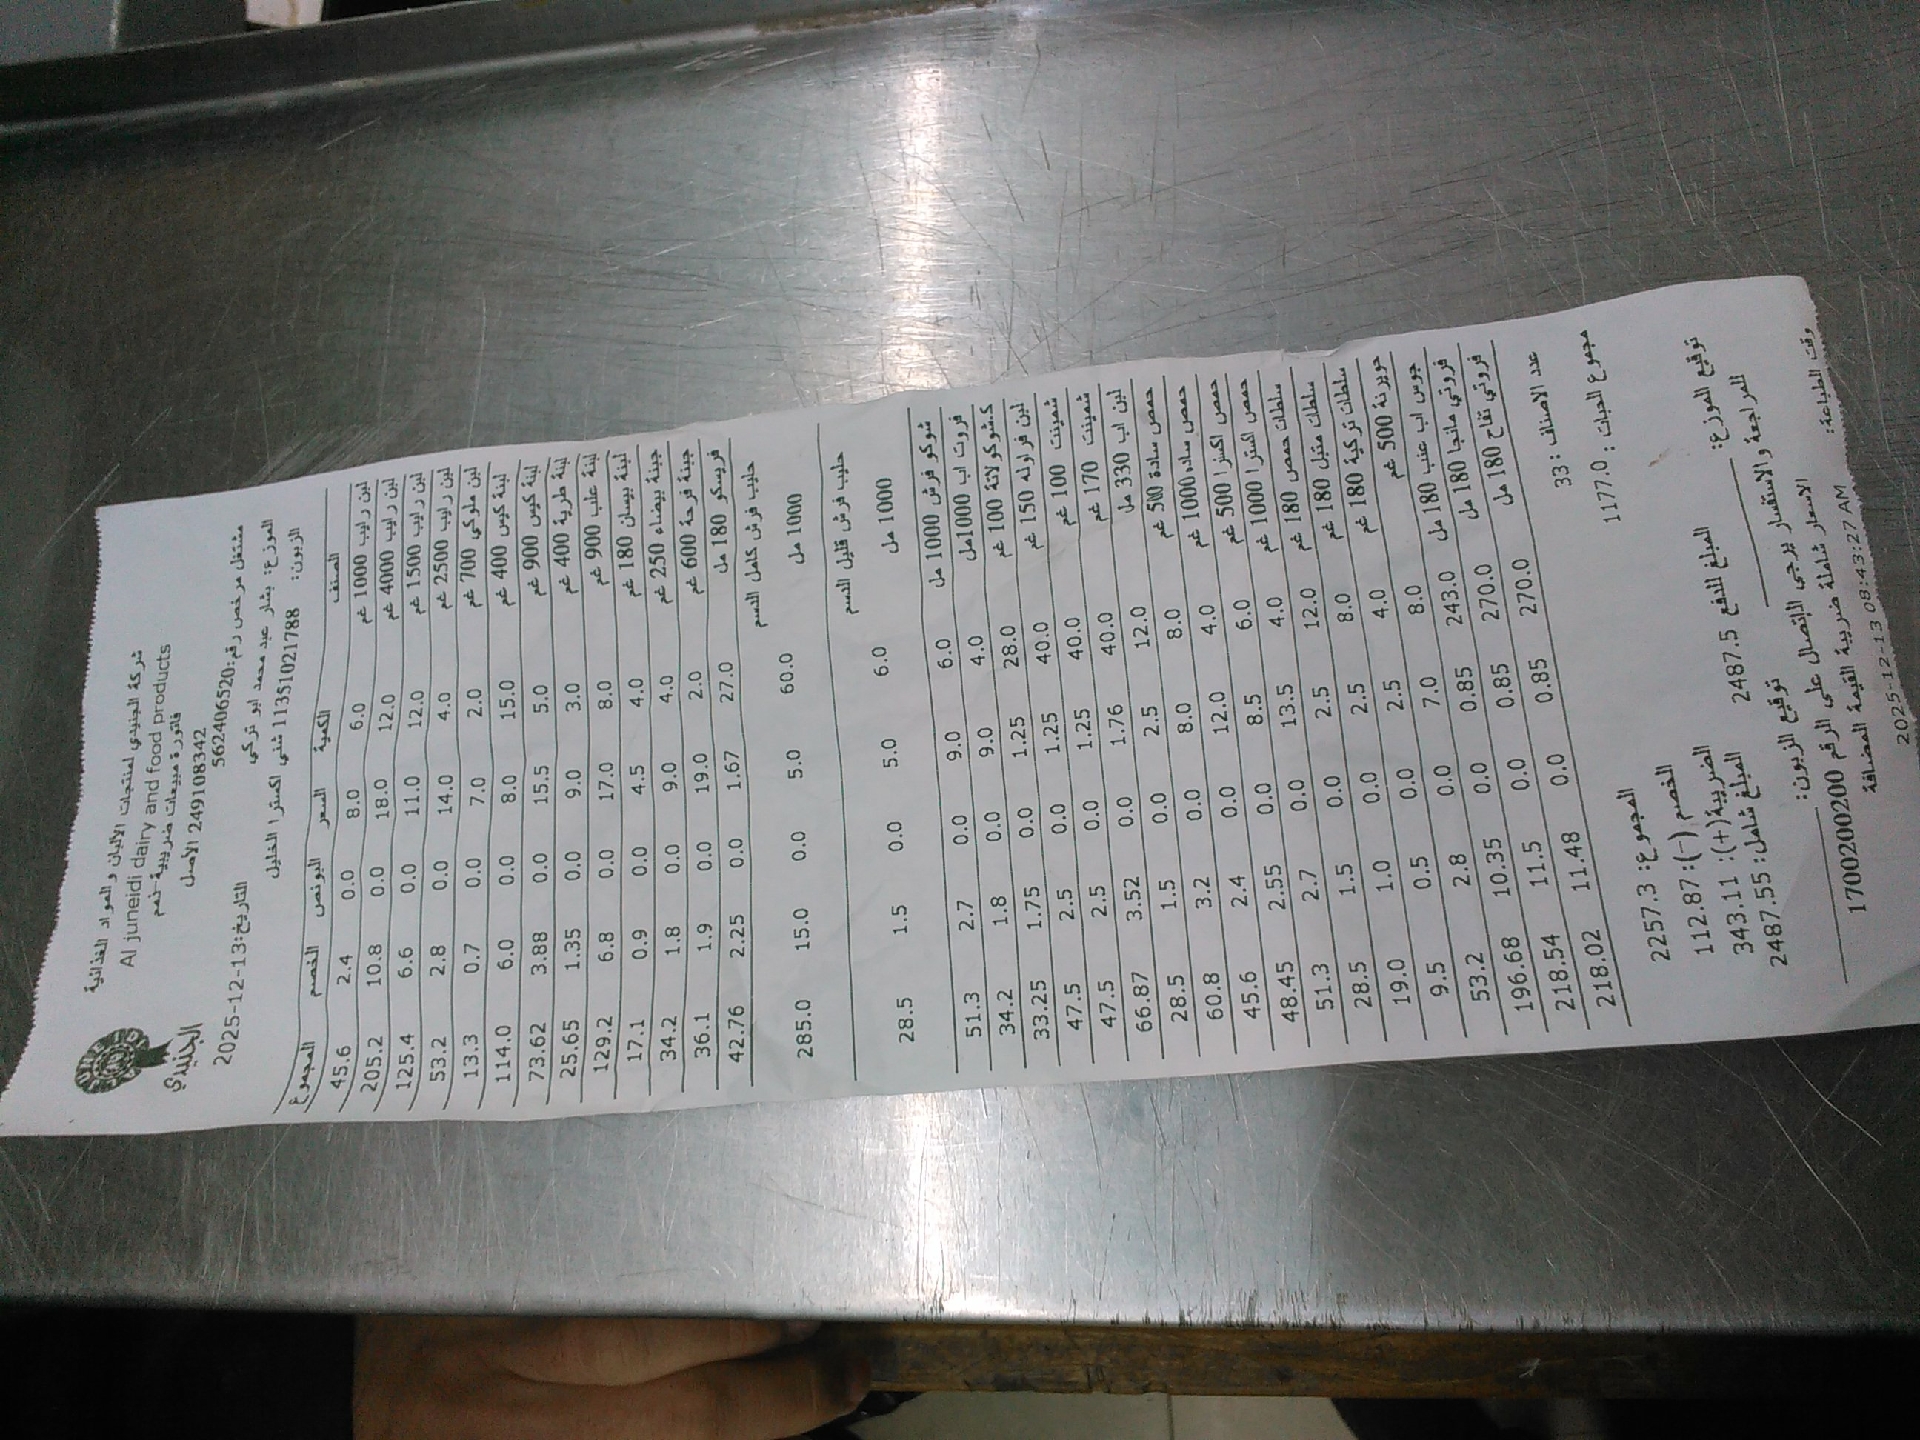 الجنيدي
شركة الجنيدي لمنتجات الألبان والمواد الغذائية
Al juneidi dairy and food products
فاتورة مبيعات ضريبية-نعم
249108342 الأصل
مشتغل مرخص رقم:562406520
التاريخ:2025-12-13
الموزع: بشار عبد محمد ابو تركي
الزبون: 11351021788 شني اكسترا الخليل
الصنف الكمية السعر البونص الخصم المجموع
لبن رايب 1000 غم 6.0 8.0 0.0 2.4 45.6
لبن رايب 4000 غم 12.0 18.0 0.0 10.8 205.2
لبن رايب 1500 غم 12.0 11.0 0.0 6.6 125.4
لبن رايب 2500 غم 4.0 14.0 0.0 2.8 53.2
لبن ملوكي 700 غم 2.0 7.0 0.0 0.7 13.3
لبنة كيس 400 غم 15.0 8.0 0.0 6.0 114.0
لبنة كيس 900 غم 5.0 15.5 0.0 3.88 73.62
لبنة طرية 400 غم 3.0 9.0 0.0 1.35 25.65
لبنة علب 900 غم 8.0 17.0 0.0 6.8 129.2
لبنة بيسان 180 غم 4.0 4.5 0.0 0.9 17.1
جبنة بيضاء 250 غم 4.0 9.0 0.0 1.8 34.2
جبنة فرحة 600 غم 2.0 19.0 0.0 1.9 36.1
فريسكو 180 مل 27.0 1.67 0.0 2.25 42.76
حليب فرش كامل الدسم
1000 مل 60.0 5.0 0.0 15.0 285.0
حليب فرش قليل الدسم
1000 مل 6.0 5.0 0.0 1.5 28.5
شوكو فرش 1000 مل 6.0 9.0 0.0 2.7 51.3
فروت اب 1000مل 4.0 9.0 0.0 1.8 34.2
كيشوكولاتة 100 غم 28.0 1.25 0.0 1.75 33.25
لبن فراوله 150 غم 40.0 1.25 0.0 2.5 47.5
شمينت 100 غم 40.0 1.25 0.0 2.5 47.5
شمينت 170 غم 40.0 1.76 0.0 3.52 66.87
لبن اب 330 مل 12.0 2.5 0.0 1.5 28.5
حمص سادة 500 غم 8.0 8.0 0.0 3.2 60.8
حمص ساده 1000 غم 4.0 12.0 0.0 2.4 45.6
حمص اكسترا 500 غم 6.0 8.5 0.0 2.55 48.45
حمص اكسترا 1000 غم 4.0 13.5 0.0 2.7 51.3
سلطات حمص 180 غم 12.0 2.5 0.0 1.5 28.5
سلطات متبل 180 غم 8.0 2.5 0.0 1.0 19.0
سلطات تركية 180 غم 4.0 2.5 0.0 0.5 9.5
500 غم 8.0 7.0 0.0 2.8 53.2
جوس اب عنب 180 مل 243.0 0.85 0.0 10.35 196.68
فروتي مانجا 180 مل 270.0 0.85 0.0 11.5 218.54
فروتي تفاح 180 مل 270.0 0.85 0.0 11.48 218.02
عدد الاصناف :33
مجموع الحبات : 1177.0
المجموع: 2257.3
الخصم (-): 112.87
الضريبة(+): 343.11
المبلغ شامل: 2487.55
المبلغ للدفع 2487.5
توقيع الموزع:
توقيع الزبون:
للمراجعة والاستفسار يرجى الاتصال على الرقم 1700200200
الاسعار شاملة ضريبة القيمة المضافة
وقت الطباعة: 2025-12-13 08:43:27 AM